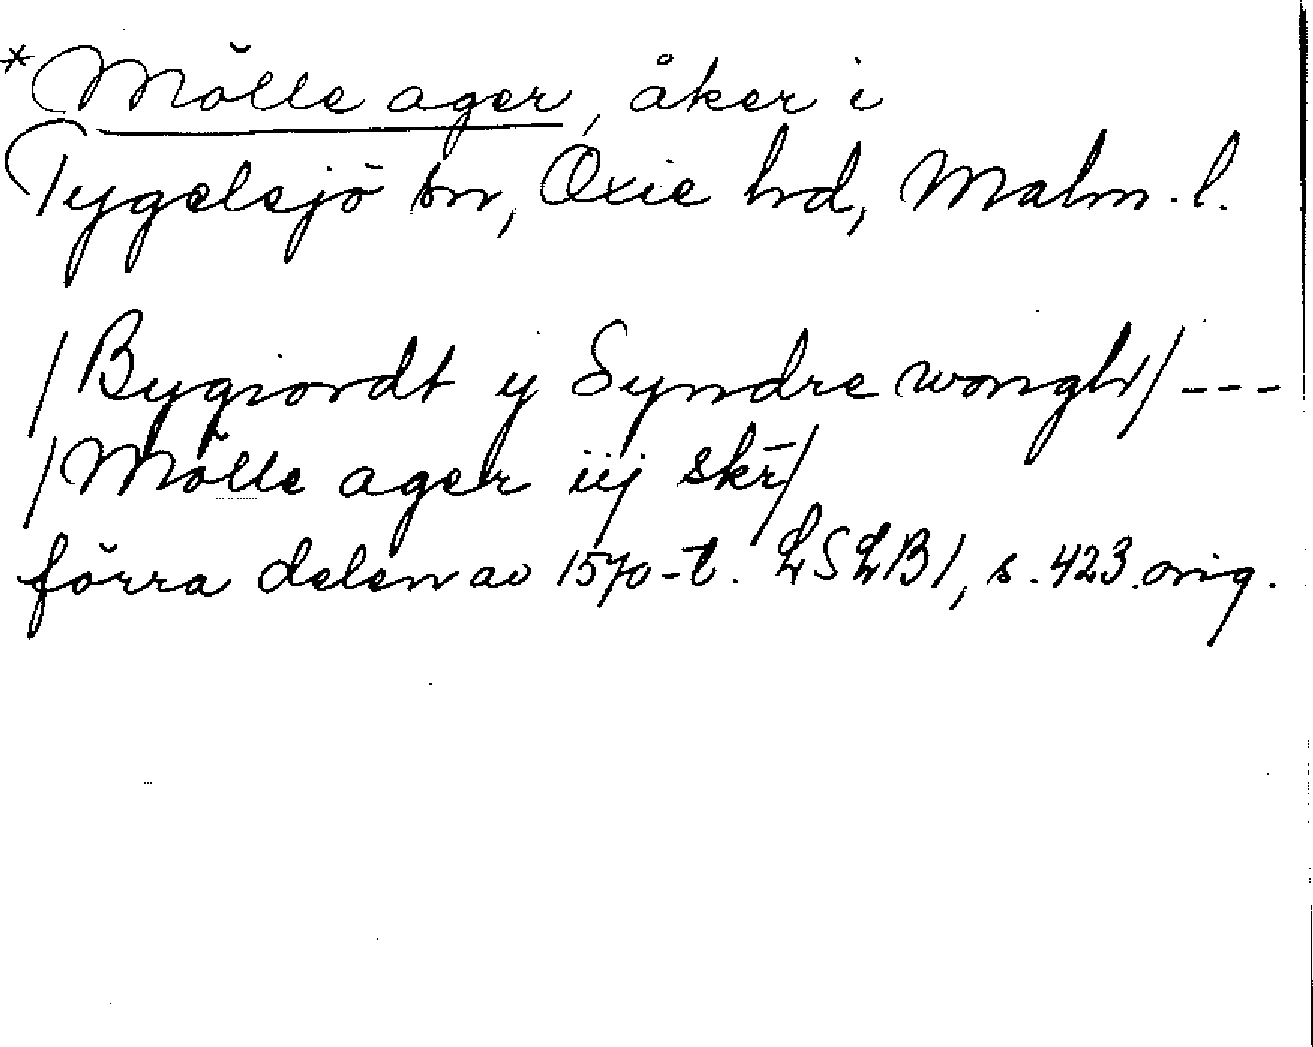 *Mölle ager, åker i
Tygelsjö sn, Oxie hd, Malm. l.
/Bygiordt y Syndre wongh/ ---
/Mölle ager iij skr̄/
förra delen av 1570-t. LSLB1, s. 423. orig.